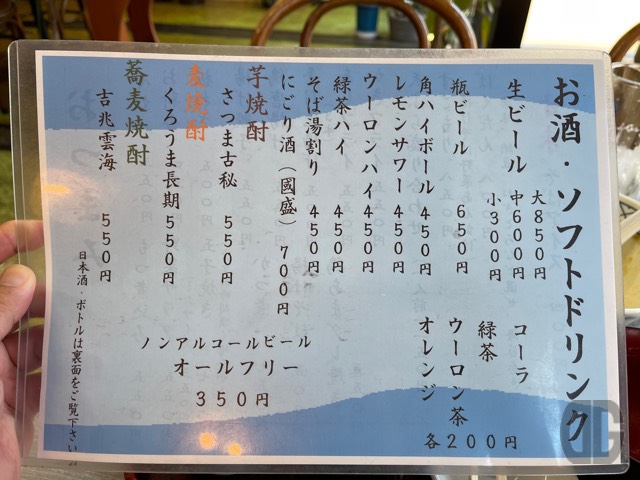 お酒・ソフトドリンク
生ビール
大850円
中600円
小300円
瓶ビール 650円
角ハイボール 450円
レモンサワー 450円
ウーロンハイ 450円
緑茶ハイ 450円
そば湯割り 450円
にごり酒(國盛) 700円
芋焼酎
さつま古秘 550円
麦焼酎
くろうま長期 550円
蕎麦焼酎
吉兆雲海 550円
コーラ
緑茶
ウーロン茶
オレンジ
各200円
ノンアルコールビール
オールフリー
350円
日本酒・ボトルは裏面をご覧下さい。